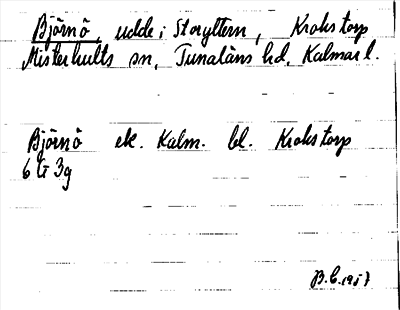 Björnö, udde i Storyttern, Krokstorp
Misterhults sn, Tunaläns hd, Kalmar l.
Björnö ek. Kalm. bl. Krokstorp
6 G 3g
B.C. 1957